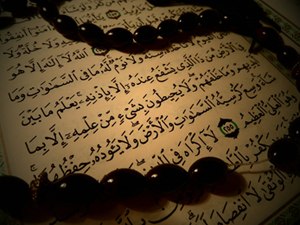 ٱللَّهُ لَآ إِلَٰهَ إِلَّا هُوَ
لَّهُۥ مَا فِى ٱلسَّمَٰوَٰتِ وَمَا
فِى ٱلْأَرْضِ مَن ذَا ٱلَّذِى يَشْفَعُ عِندَهُۥٓ إِلَّا بِإِذْنِهِۦ يَعْلَمُ مَا بَيْنَ
أَيْدِيهِمْ وَمَا خَلْفَهُمْ وَلَا يُحِيطُونَ بِشَىْءٍ مِّنْ عِلْمِهِۦٓ إِلَّا بِمَا
شَآءَ وَسِعَ كُرْسِيُّهُ ٱلسَّمَٰوَٰتِ وَٱلْأَرْضَ وَلَا يَـُٔودُهُۥ حِفْظُهُمَا
وَهُوَ ٱلْعَلِىُّ ٱلْعَظِيمُ ٢٥٥ لَآ إِكْرَاهَ فِى
ٱلْوُثْقَىٰ لَا ٱنفِصَامَ لَهَا